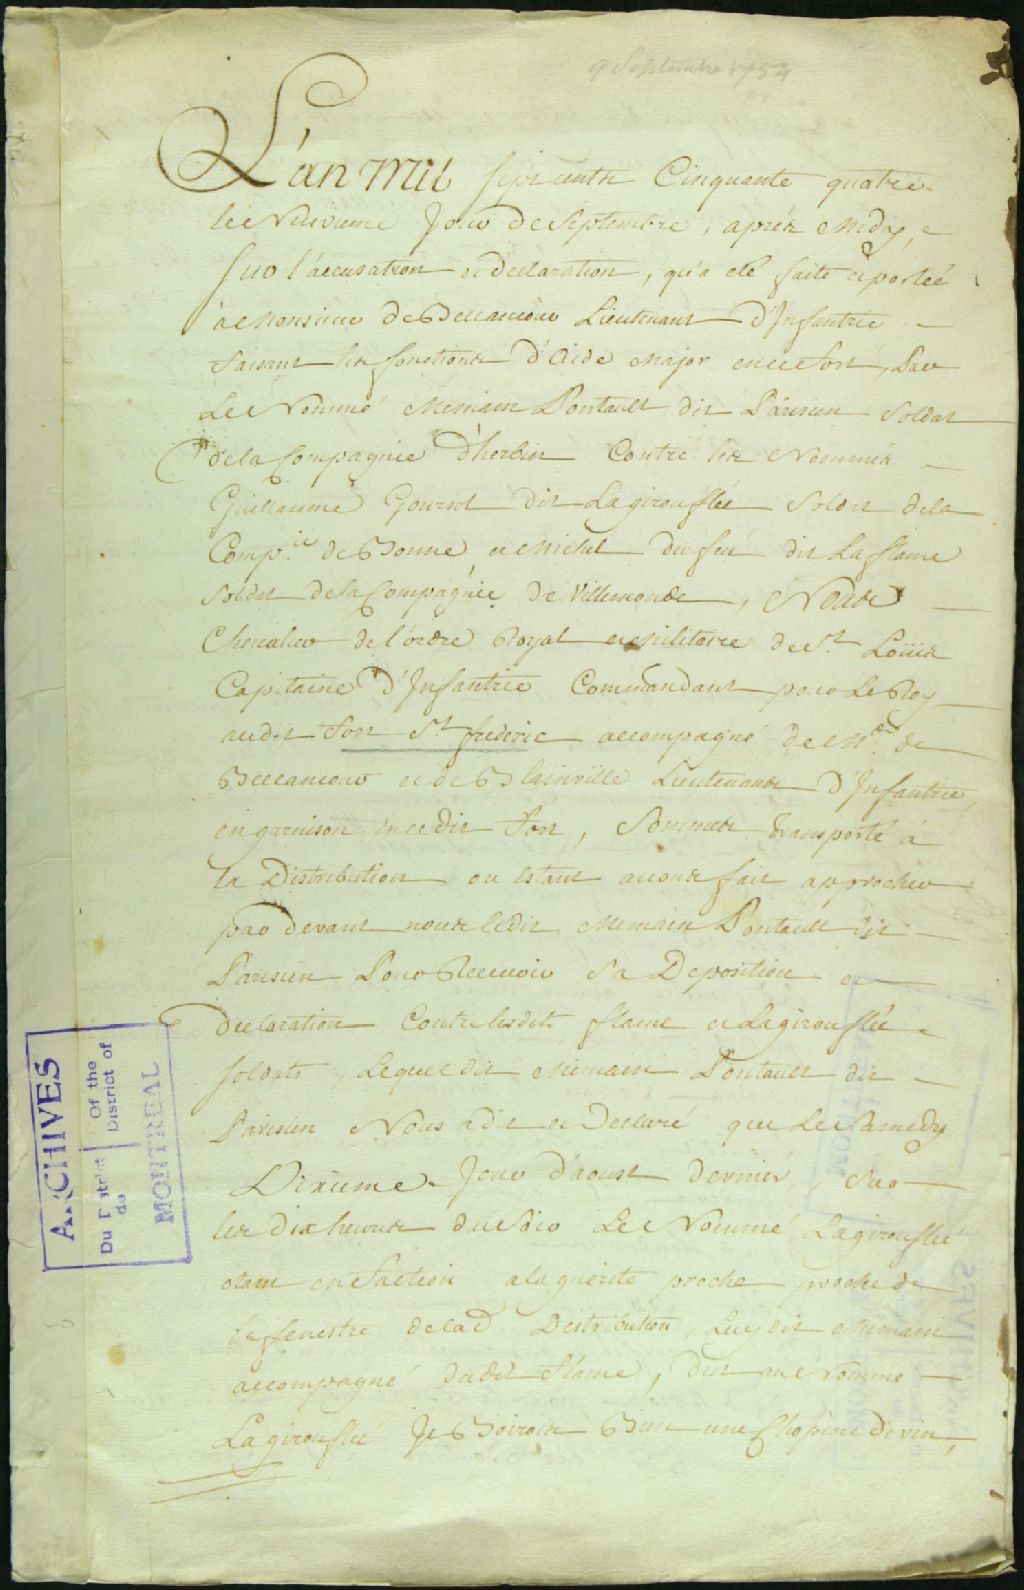 9 Septembre 1754
L'an Mil sept cents Cinquante quatre
le Neuvieme Jour de Septembre, aprés Midy,
sur l'accusation et declaration, qu'a eté faite et portée
à Monsieur de Beccancour Lieutenant D'Infantrie
faisant les fonctions d'Aide Major en ce fort, Par
Le Nommé Memain Pontault dit Parisien Soldat
de la Compagnie D'herbin Contre les Nommés
Guillaume Goursol dit Lagirouflée Soldat dela
Comp.ie de Bonne, et Michel Dufeu dit La flame
Soldat de la Compagnie de Villemonde, Nous
Chevalier de l'ordre Royal et Militaire de St. Loüis
Capitaine D'Infantrie Commandant pour Le Roy
audit fort St. frederic accompagné de Mrs. de
Beccancour et de Blainville Lieutenants D'Infantrie,
en garnison en cedit fort, Sommes transporté à
la Distribution ou estant avons fait approcher
par devant nous ledit Memain Pontault dit
Parisien Pour Recevoir Sa Deposition et
declaration Contre lesdits flame et Lagirouflée
soldats, Lequel dit Memain Pontault dit
Parisien Nous a dit et Declaré que Le Samedy
Dixieme Jour d'aoust dernier, Sur
les dix heures du Soir Le Nommé Lagirouflée
etant en faction a la guerite proche proche de
la fenestre de lad Distribution, Luy dit Memain
accompagné dudit flame, dit au Nommé
Lagirouflée Je Boirois Bien une Chopine de vin,
ARCHIVES
Du District Of the
du District of
MONTREAL